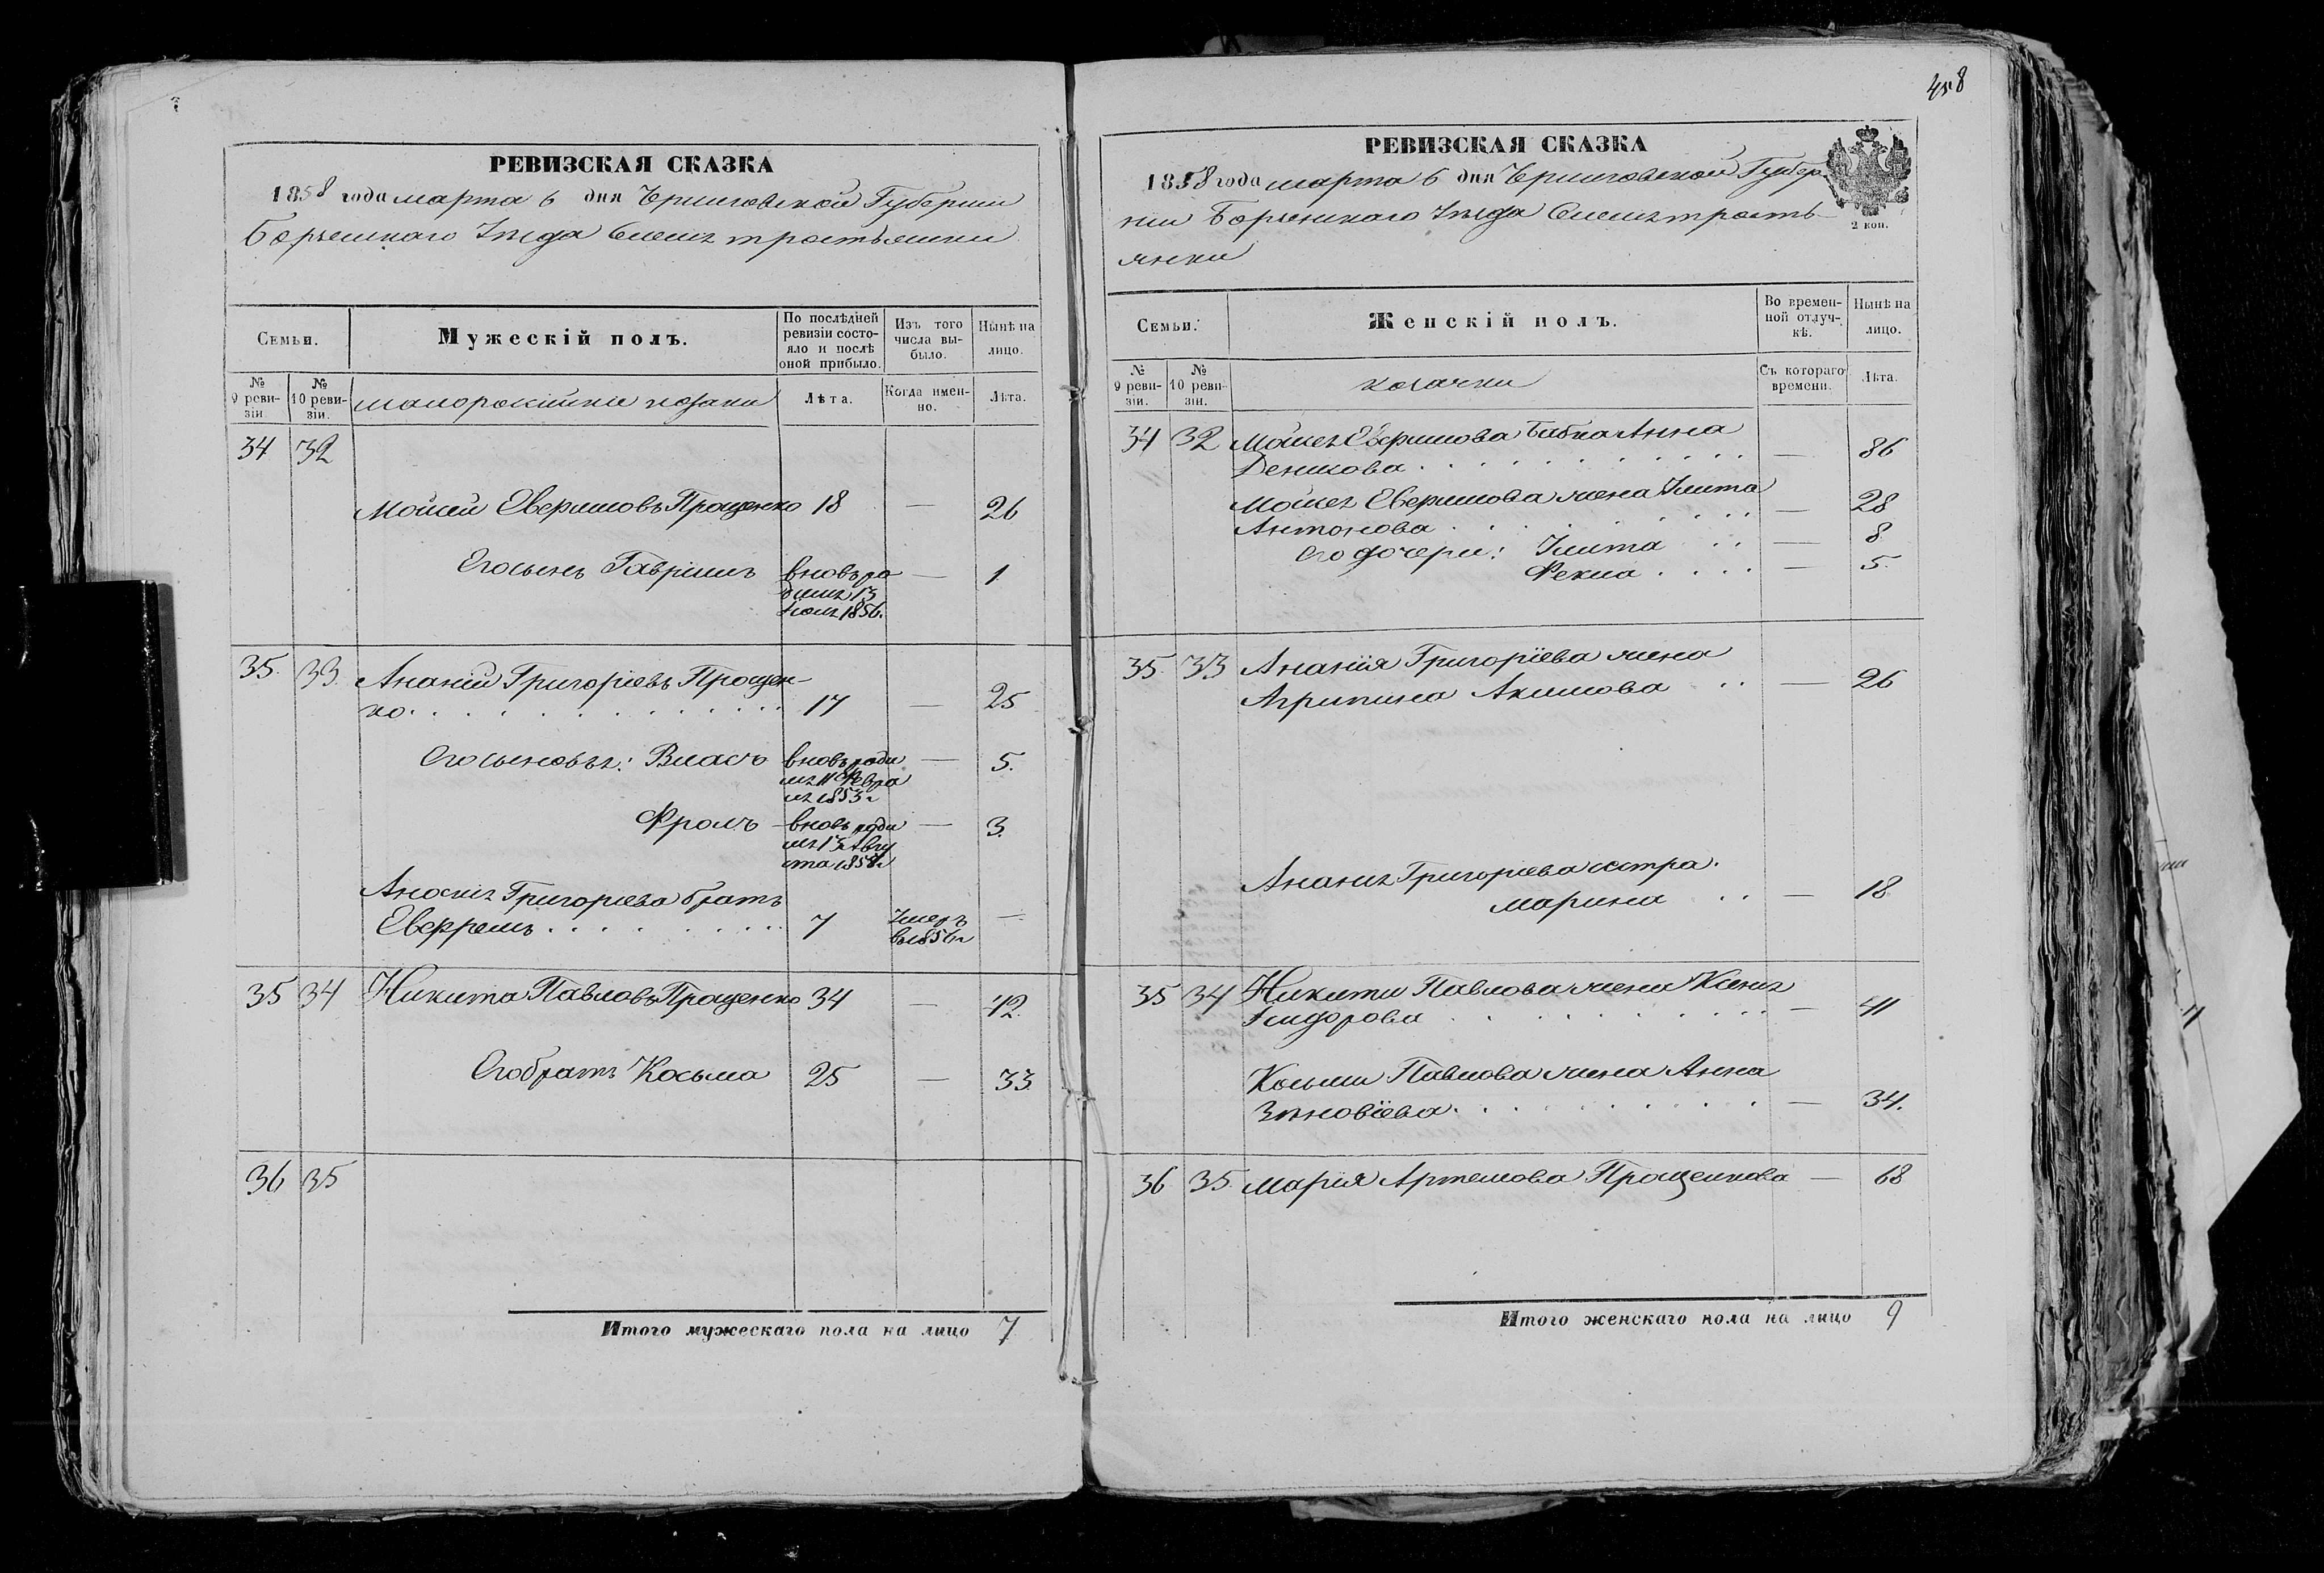 458
РЕВИЗСКАЯ СКАЗКА
1858 года марта 6 дня Черниговской Губернии
Борзенскаго Уезда Селенія тростянки
Семьи.
Мужескій полъ.
По послѣдней ревизіи состояло и послѣ оной прибыло.
Изъ того числа выбыло.
Нынѣ на лицо.
№ 9 ревизіи.
№ 10 ревизіи.
малоросійскіе козаки
Лѣта.
Когда именно.
Лѣта.
34 32
Мойсей Евфимовъ Проценко 18 — 26
Его сынъ Гавріилъ вновь ро — 1
дился 13
Іюля 1856.
35. 33. Ананій Григоріевъ Процен-
ко. 17 — 25
Его сыновья: Власъ вновь роди — 5.
лся 11 Февра
ля 1853 г
Фролъ — вновь роди — 3.
лся 13 Авгу
ста 185
Ананія Григоріева братъ
Евфремъ 7 Умеръ —
в 1856 г
35 34 Никита Павловъ Проценко 34 — 42.
Его братъ Косьма 25 — 33
36 35
Итого мужескаго пола на лицо 7
РЕВИЗСКАЯ СКАЗКА
1858 года марта 6 дня Черниговской Губер
ніи Борзенскаго Уезда Селенія трость-
янки
2 коп.
Семьи.
Женскій полъ.
Во временной отлучкѣ.
Нынѣ на лицо.
№ 9 ревизіи.
№ 10 ревизіи.
козачки
Съ котораго времени.
Лѣта.
34 32 Мойсея Евфимова бабка Анна
Денисова — 86
Мойсея Евфимова жена Улита
Антонова — 28
Его дочери: Улита — 8.
Фекла — 5.
35. 33 Ананія Григоріева жена
Агрипина Акимова — 26
Ананія Григоріева сестра
марина — 18
35 34 Никиты Павлова жена Ксенія
Сидорова — 41
Косьмы Павлова жена Анна
Зиновіева — 34.
36 35. Марія Артемова Проценкова — 68
Итого женскаго пола на лицо 9